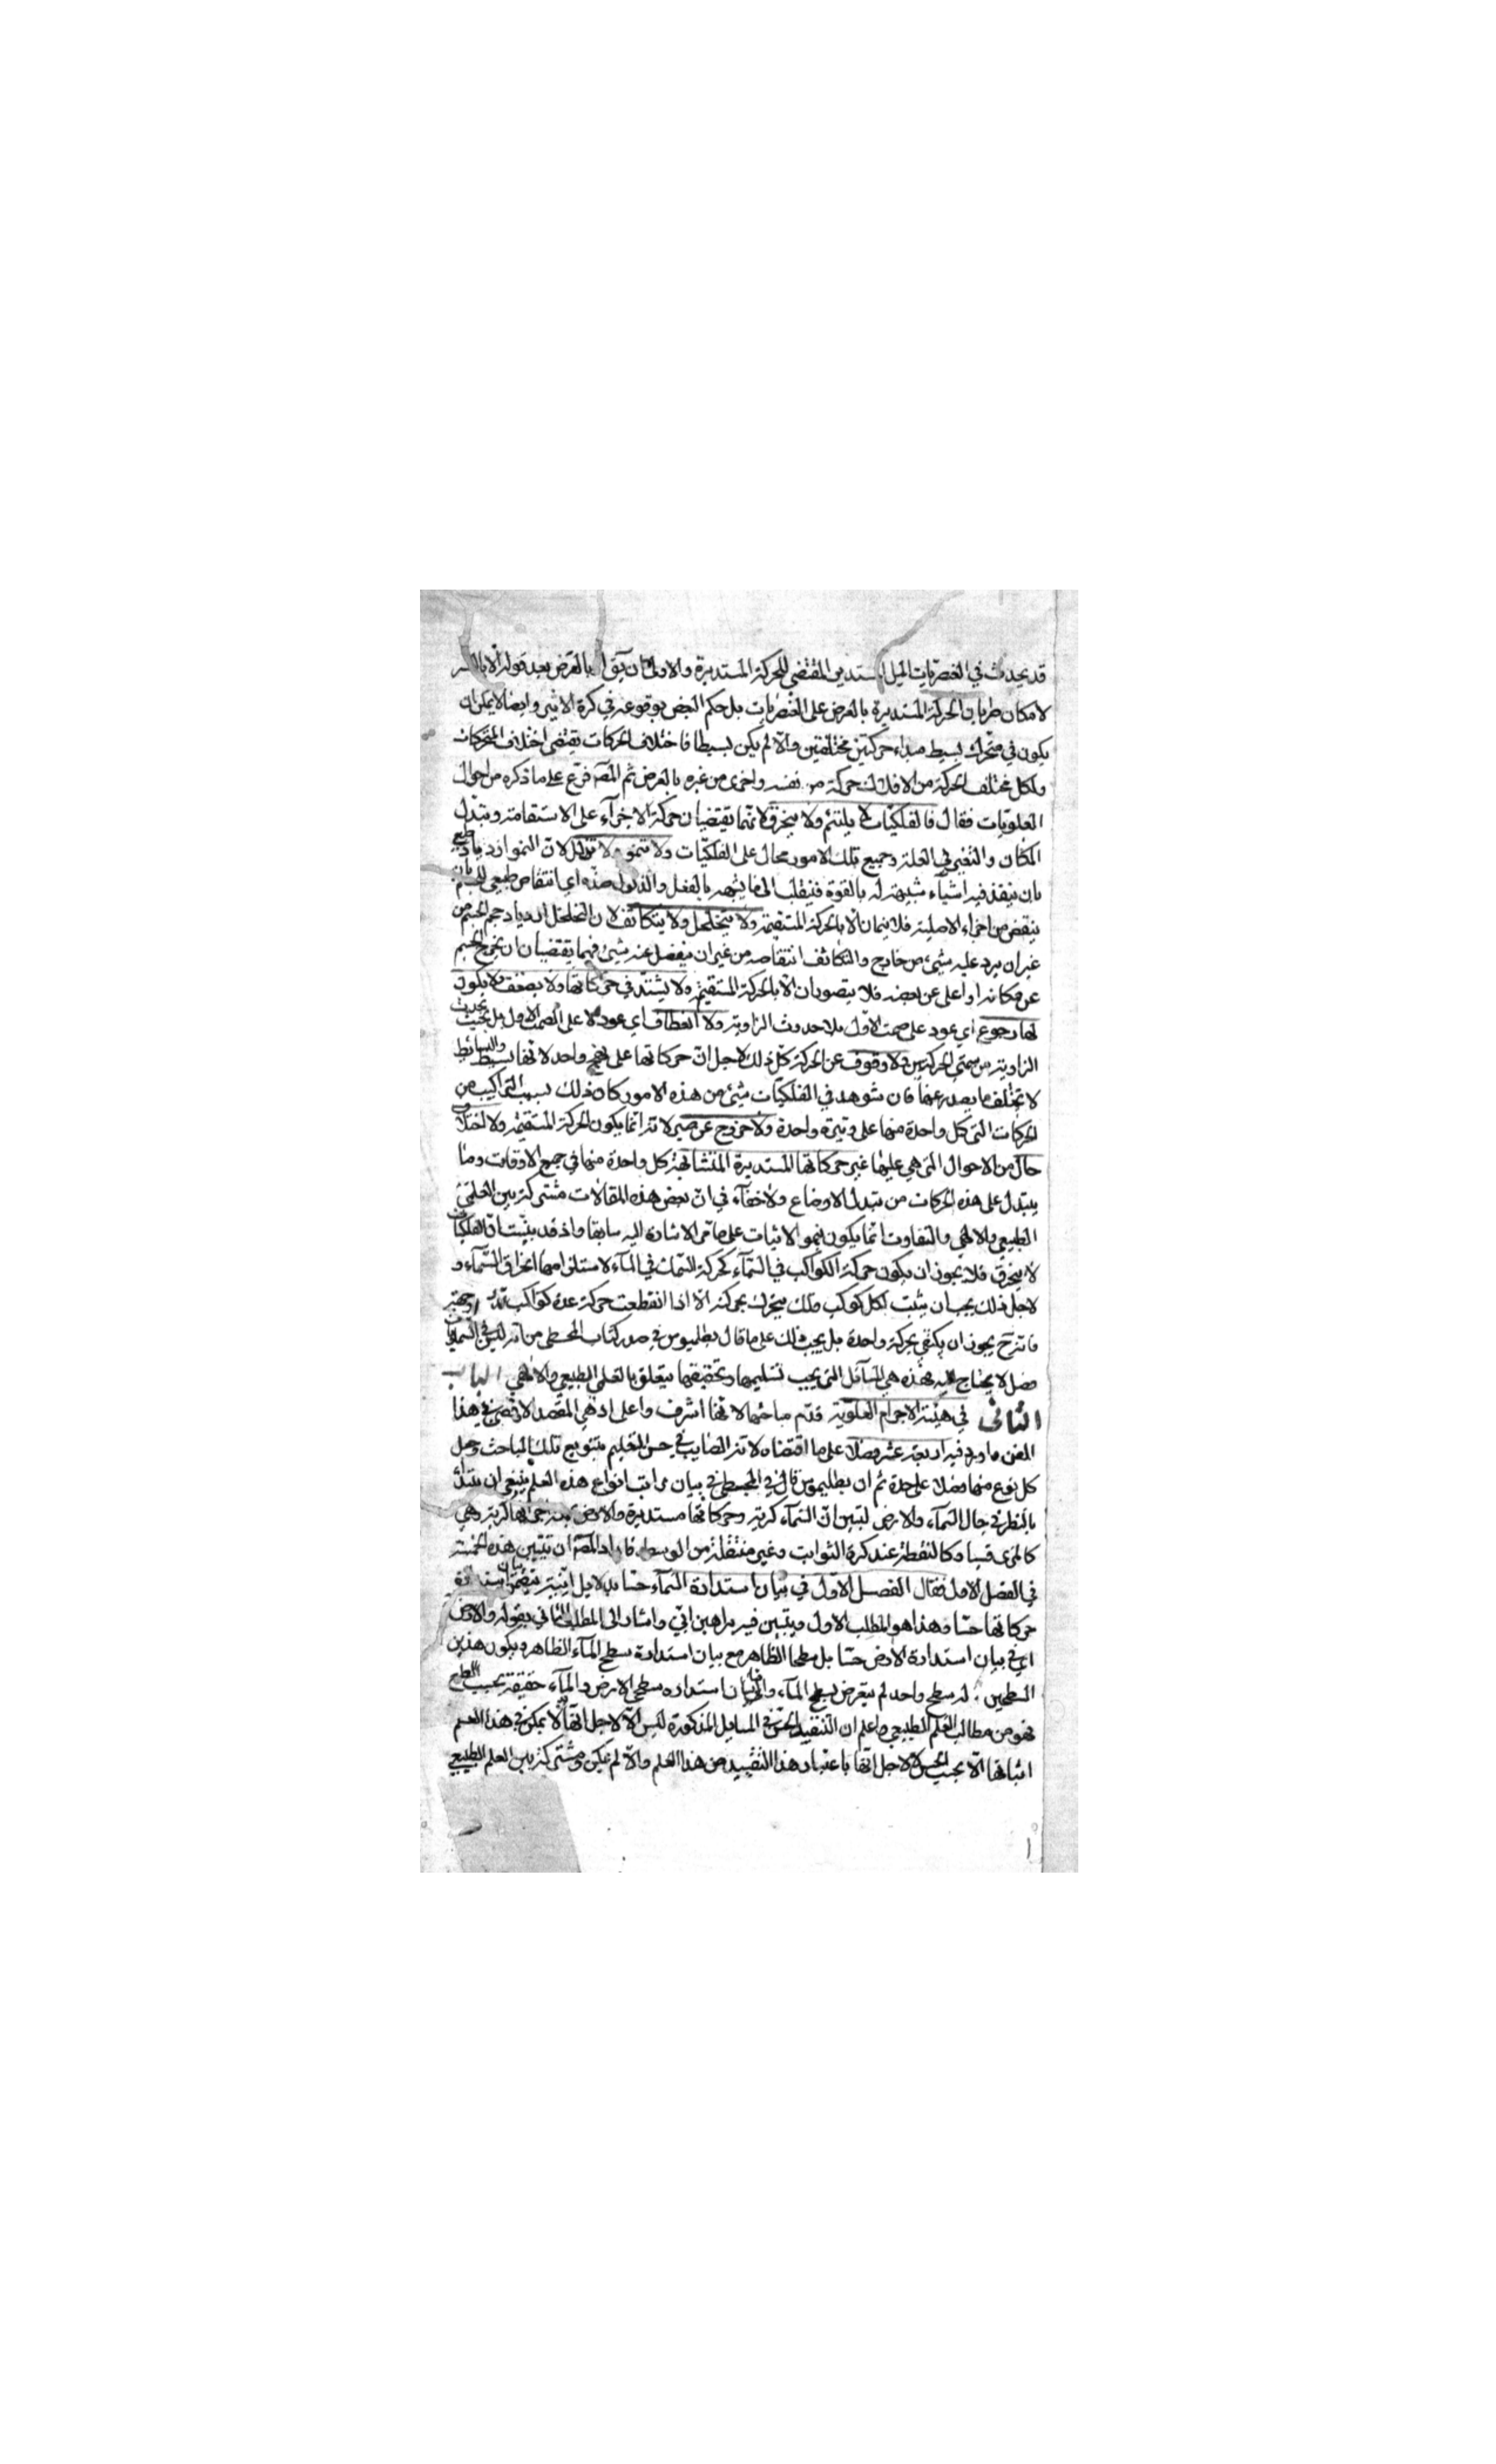 قد يحدث في العنصريات الميل المستدير المقتضي للحركة المستديرة والاولى ان يقول بالعرض بعد قوله الا بالقسر
لامكان طريان الحركة المستديرة بالعرض على العنصريات بل حكم البعض بوقوعه في كرة الاثير وايضا لا يمكن ان
يكون في متحرك بسيط مبداء حركتين مختلفتين والا لم يكن بسيطا فاختلاف الحركات يقتضي اختلاف المتحركات
ولكل مختلف الحركة من الافلاك حركة من نفسه واخرى من غيره بالعرض ثم المصه فرع على ما ذكره من احوال
العلويات فقال فالفلكيات لا يلتئم ولا ينخرق لانهما يقتضيان حركة الاجزآء على الاستقامة وتبدل
المكان والتغير في الغلة وجميع تلك الامور محال على الفلكيات ولا تنمو ولا تذبل لان النمو ازدياد طبيعي
بان ينفذ فيه اشيآء شبيهة له بالقوة فينقلب الى ما يشبهه بالفعل والذبول ضده اي انتقاص طبيعي للجسم بان
ينقص من اجزاء الاصلية فلا يتمان الا بالحركة المستقيمة ولا يتخلخل ولا يتكاثف لان التخلخل ازدياد حجم الجسم من
غير ان يرد عليه شيء من خارج والتكاثف انتقاصه من غير ان ينفصل عنه شيئ فهما يقتضيان ان يخرج الجسم
عن مكانه او اعلى عن بعضه فلا يتصوران الا بالحركة المستقيمة ولا يشتد في حركاتها ولا يضعف ولا يكون
لها رجوع اي عود على صمت الاول بلا حدوث الزاوية ولا انعطاف اي عود لا على الصمت الاول بل بحيث يحدث
الزاوية من سمتي الحركتين ولا وقوف عن الحركة كل ذلك لاجل ان حركاتها على نهج واحد لانها بسيط والبسائط
لا تختلف ما يصدر عنها فان شوهد في الفلكيات شيئ من هذه الامور كان ذلك بسبب التراكيب من
الحركات التي كل واحدة منها على وتيرة واحدة ولا خروج عن حيز لانه انما يكون الحركة المستقيمة ولا اختلاف
حال من الاحوال التي هي عليها غير حركاتها المستديرة المتشابهة كل واحدة منها في جميع الاوقات وما
يتبدل على هذه الحركات من تبدل الاوضاع ولا خفآء في ان بعض هذه المقالات مشتركة بين العلمين
الطبيعي والالهي والتفاوت انما يكون بنحو الاثبات على ما مر الاشارة اليه سابقا واذ قد بينت ان الفلكيات
لا ينخرق فلا يجوز ان يكون حركة الكواكب في السمآء كحركة السمك في المآء لاستلزامها انخراق السمآء و
لاجل ذلك يجب ان يثبت لكل كوكب فلك يتحرك بحركته الا اذا انقطعت حركة عدة كواكب قدرا وجهة
فانه ح يجوز ان يكتفي بحركة واحدة بل يجب ذلك على ما قال بطليموس في صدر كتاب المجسطي من انه ليس في السماويات
فضل لا يحتاج اليه فهذه هي المسآئل التي يجب تسليمها وتحقيقها يتعلق بالعلمي الطبيعي والالهي الباب
الثاني في هيئة الاجرام العلوية قدم مباحثها لانها اشرف واعلى اذ هي المقصد الاقصى في هذا
الفن واورد فيه اربعة عشر فصلا على ما اقتضاه لانه الصايب في حسن التعليم بتنويع تلك المباحث وجعل
كل نوع منها فصلا على حدة ثم ان بطليموس قال في المجسطي في بيان مراتب انواع هذه العلم ينبغي ان يبتدأ
بالنظر في حال السمآء والارض ليتبين ان السمآء كرية وحركاتها مستديرة والارض بجميع اجزائها كرية وهي
كالمركز قياسا وكالنقطة عند كرة الثوابت وغير منتقلة من الوسط فاراد المصه ان تبيين هذه الخمسة
في الفصل الاول فقال الفصل الاول في بيان استدارة السمآء حسا بدلايل انية يتضمن بيان استدارة
حركاتها حسا وهذا هو المطلب الاول ويتبين فيه براهين اني واشار الى المطلب الثاني بقوله والارض
اي في بيان استدارة الارض حسا بل سطحها الظاهر مع بيان استدارة سطح المآء الظاهر ويكون هذين
السطحين له سطح واحد لم يتعرض بسطح المآء واما بيان استداره سطحي الارض والمآء حقيقة بحسب الطبع
فهو من مطالب العلم الطبيعي واعلم ان التقييد بالحس في المسايل المذكورة ليس الا لاجل انها لا يمكن في هذا العلم
اثباتها الا بحسب الحس لا لاجل انها باعتبار هذا التقييد من هذا العلم والا لم يكن مشتركة بين العلم الطبيعي